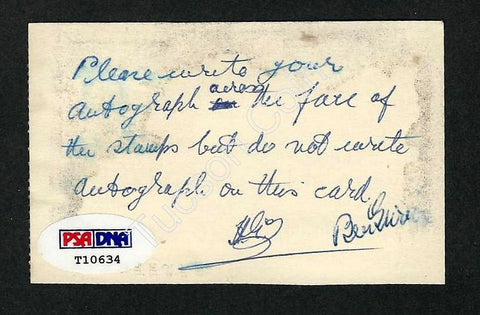 Please write your
across
autograph on the face of
the stamps but do not write
autograph on this card.
Ben Guri
PSA DNA
T10634